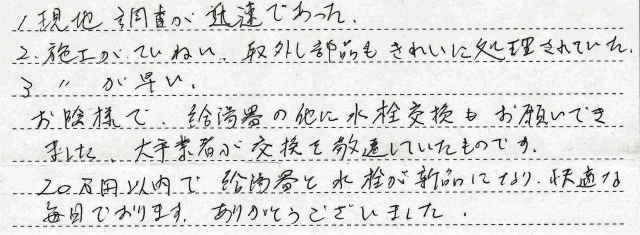 1. 現地調査が迅速であった.
2. 施工がていねい. 取外し部品もきれいに処理されていた.
3 〃 が早い.
お陰様で、給湯器の他に水栓交換もお願いでき
ました. 大手業者が交換を敬遠していたものです.
20万円以内で給湯器と水栓が新品になり、快適な
毎日であります. ありがとうございました.